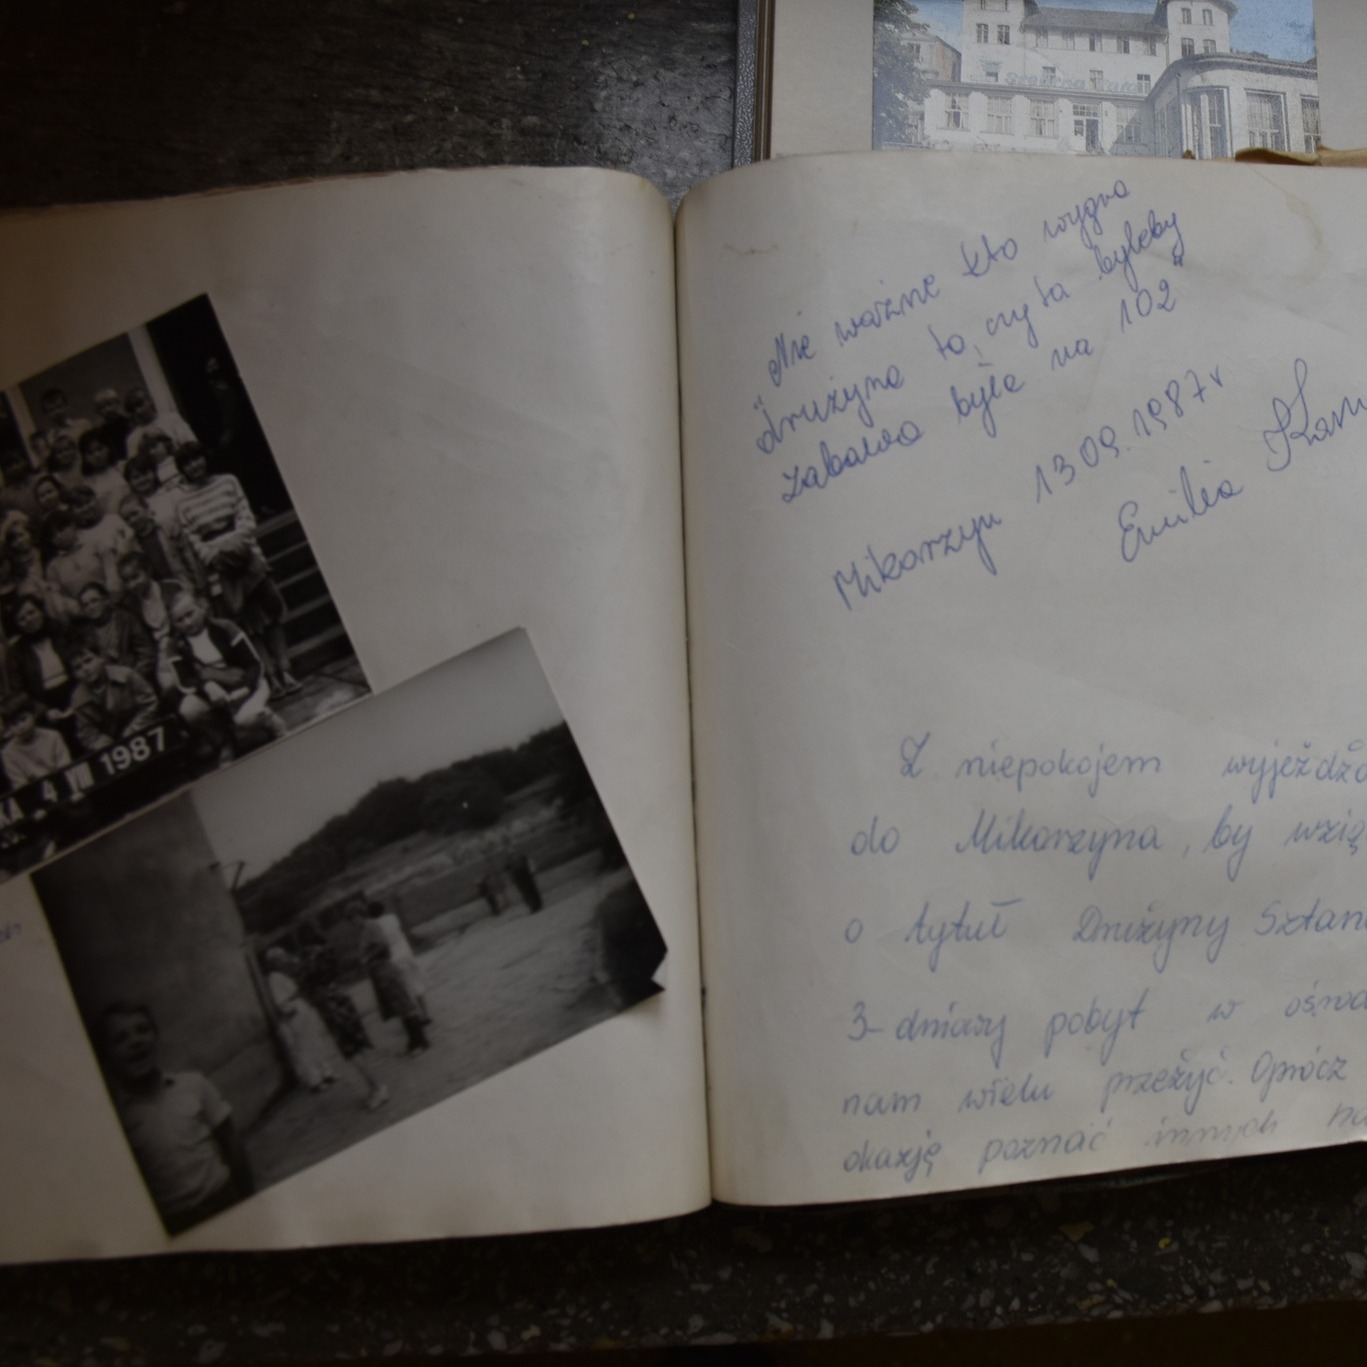 "Nie ważne kto wygra
drużyna ta, czy ta byleby
zabawa była na 102"
Mikorzyn 13.09.1987r
Emilia
Z niepokojem wyjeżdża
do Mikorzyna, by wzią
o tytuł Drużyny Sztan
3-dniowy pobyt w ośro
nam wielu przeżyć. Oprócz
okazję poznać innych
4 VII 1987